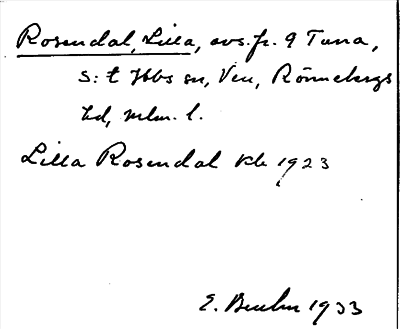 Rosendal, Lilla, avs. fr. 9 Tuna,
S:t Ibbs sn, Ven, Rönnebergs
hd, mlm. l.
Lilla Rosendal Kk 1923
E. 1933